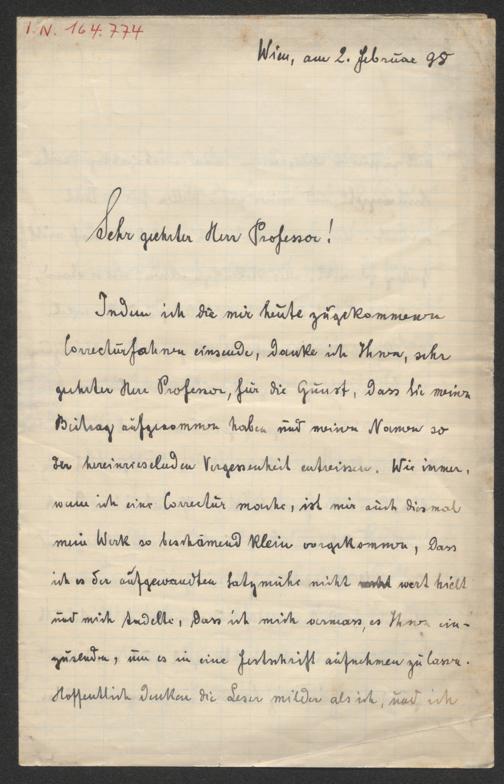 I. N. 164.774
Wien, am 2. Februar 98
Sehr geehrter Herr Professor!
Indem ich die mir heute zugekommenen
Correcturfahnen einsende, danke ich Ihnen, sehr
geehrter Herr Professor, für die Gunst, dass Sie meinen
Beitrag aufgenommen haben und meinen Namen so
der hereinrieselnden Vergessenheit entreissen. Wie immer,
wenn ich eine Correctur mache, ist mir auch diesmal
mein Werk so beschämend klein vorgekommen, dass
ich es der aufgewandten Satzmühe nicht wert hielt
und mich tadelte, dass ich mich vermass, es Ihnen ein-
zusenden, um es in eine Festschrift aufnehmen zu lassen.
Hoffentlich denken die Leser milder als ich, und ich